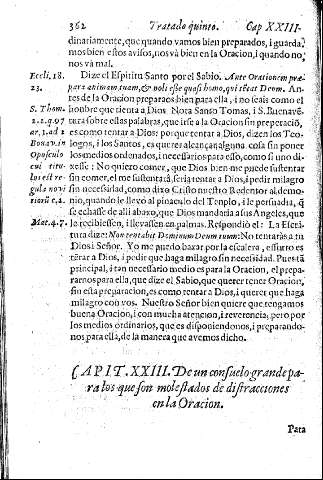 362 Tratado quinto. Cap XXIII.
dinariamente, que quando vamos bien preparados, i guarda
mos bien estos avisos, nos và bien en la Oracion, i quando no,
nos và mal.
Eccli, 18.
23.
Dize el Espiritu Santo por el Sabio. Ante Orationem præ
para animam tuam, & noli esse quasi homo, qui tētat Deum. An-
tes de la Oracion preparaos bien para ella, i no seais como el
S. Thom.
2. 2. q. 97
ar. 3. ad 2
Bonav. in
Opusculo
hombre que tienta a Dios Nota Santo Tomas, i S. Buenavē
tura sobre estas palabras, que irse a la Oracion sin preparaciō,
es como tentar a Dios: porque tentar a Dios, dizen los Teo-
logos, i los Santos, es querer alcançar alguna cosa sin poner
los medios ordenados, i necessarios para esso, como si uno di-
xesse: No quiero comer, que Dios bien me puede sustentar
sin comer, el me sustentarà, seria tentar a Dios, i pedir milagro
sin necessidad, como dixo Cristo nuestro Redentor al demo-
nio, quando le llevò al pinaculo del Templo, i le persuadia, q̄
se echasse de alli abaxo, que Dios mandaria a sus Angeles, que
Mat. 4. 7.
le recibiessen, i llevassen en palmas. Respondiò el: La Escri-
tura dize: Non tentabis Dominum Deum tuum: No tentaràs a tu
Dios i Señor. Yo me puedo baxar por la escalera, essotro es
tētar a Dios, i pedir que haga milagro sin necessidad. Pues tā
principal, i tan necessario medio es para la Oracion, el prepa-
rarnos para ella, que dize el Sabio, que querer tener Oracion,
sin esta preparacion, es como tentar a Dios, i querer que haga
milagro con vos. Nuestro Señor bien quiere que tengamos
buena Oracion, i con mucha atencion, i reverencia, pero por
los medios ordinarios, que es disponiendonos, i preparando-
nos para ella, de la manera que avemos dicho.
CAPIT. XXIII. De un consuelo grande pa-
ra los que son molestados de distracciones
en la Oracion.
Para